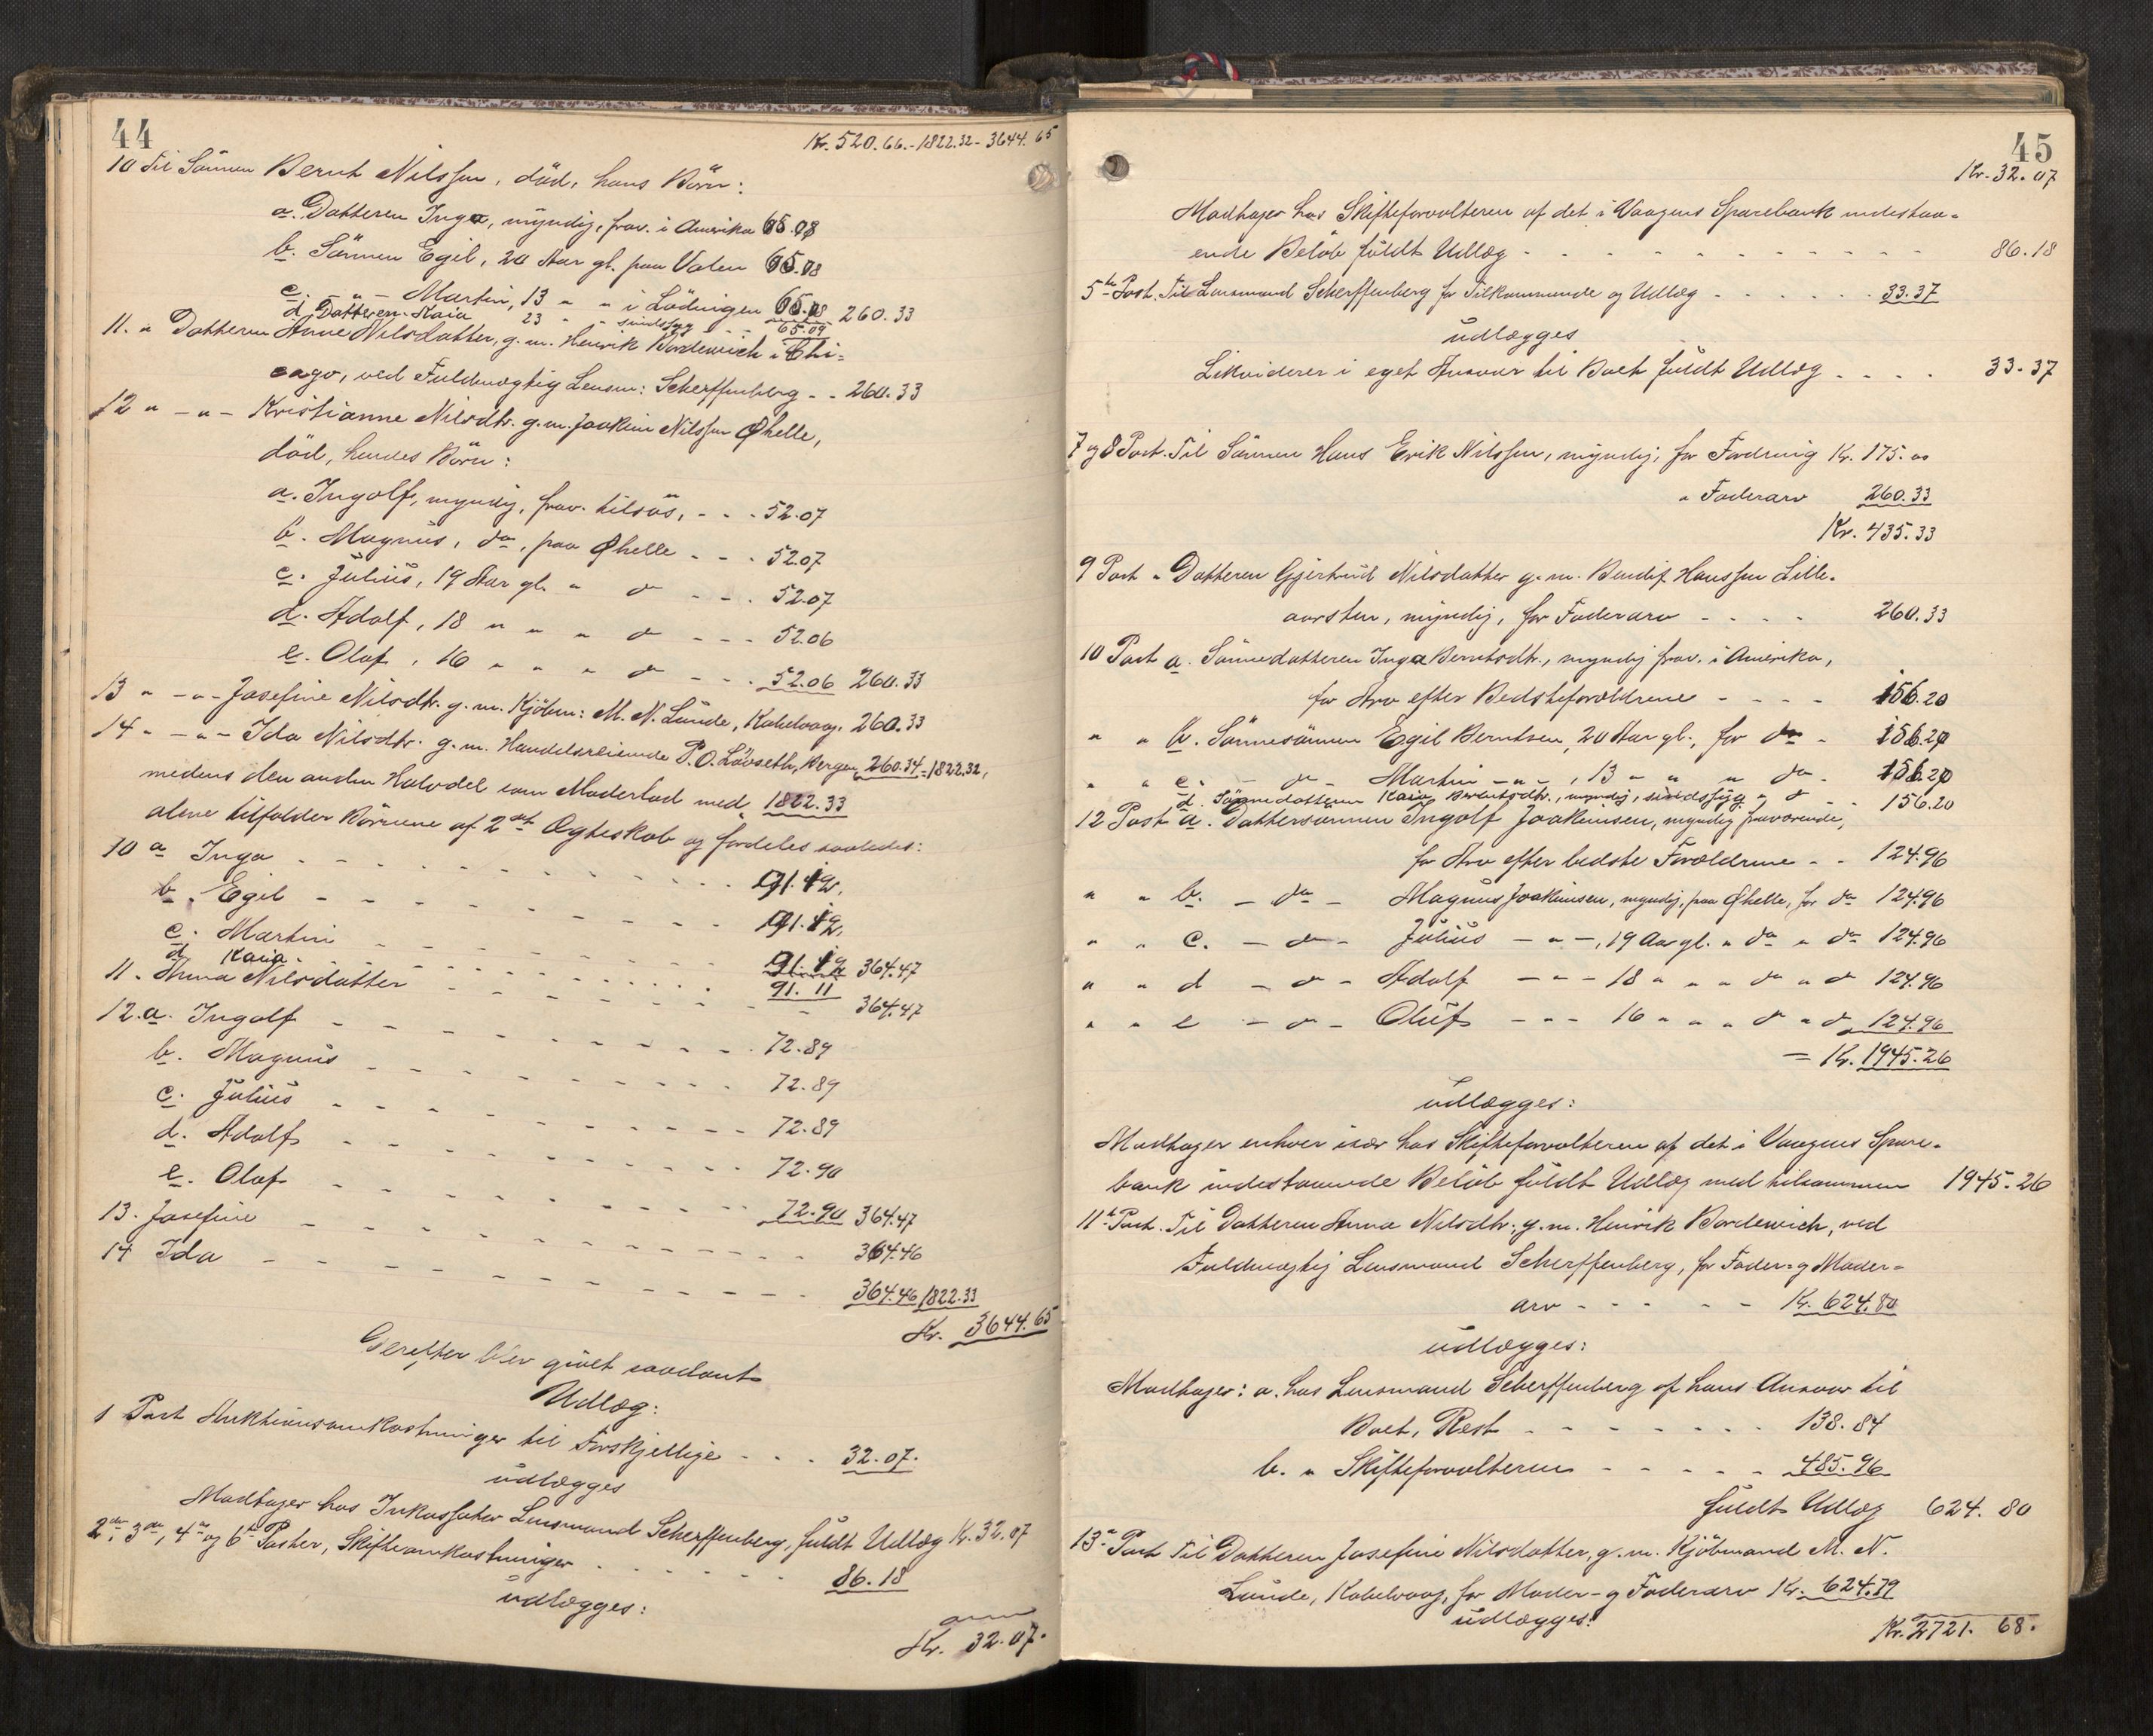 44
Kr. 520.66.-1822.32-3644.65
10 Til Sönnen Bernt Nilssen, död, hans Börn:
a. Datteren Inga, myndig, frav. i Amerika 65.08
b. Sönnen Egil, 20 Aar gl. paa Valen 65.08
c. - " - Martin, 13 " " i Lödingen 65.08 260.33
d. Datteren Kaia 23 " " sindssyg - - 65.09
11. " Datteren Anne Nilsdatter, g. m. Henrik Bordewich i Chi-
cago, ved Fuldmægtig Lensm: Scherffenberg - - 260.33
12 " - " - Kristianne Nilsdtr. g. m. Joakim Nilssen Øhelle,
död, hendes Börn:
a. Ingolf, myndig, frav. tilsøs, - - - 52.07
b. Magnus, do, paa Øhelle - - - 52.07
c. Julius, 19 Aar gl. " do - - - 52.07
d. Adolf, 18 " " " do - - - 52.06
e. Olaf, 16 " " " do - - - 52.06 260.33
13 " - " - Josefine Nilsdtr. g. m. Kjöbm: M. N. Lunde, Kabelvaag, 260.33
14 " - " - Ida Nilsdtr. g. m. Handelsreisende P. O. Lövseth, Bergen, 260.34 = 1822.32,
medens den anden Halvdel som Moderlod med " 1822.33
alene tilfalder Börnene af 2det Ægteskab og fordeles saaledes:
10 a Inga - - - - 91.12.
b. Egil - - - - 91.12.
c. Martin - - - - 91.12 364.47
d. Kaia - - - - 91.11
11. Anna Nilsdatter - - - - 364.47
12. a. Ingolf - - - - 72.89
b. Magnus - - - - 72.89
c. Julius - - - - 72.89
d. Adolf - - - - 72.90
e. Olaf - - - - 72.90 364.47
13. Josefine - - - - 364.46
14 Ida - - - - 364.46 1822.33
Kr. 3644.65
Derefter blev givet saadant
Udlæg:
1 Post Auktionsomkostninger til Forskjellige - - - 32.07.
udlægges
Modtager hos Inkassator Lensmand Scherffenberg, fuldt Udlæg Kr. 32.07
2den, 3die, 4de og 6te Poster, Skifteomkostninger - - - - 86.18
udlægges:
Kr. 32.07.
45
Kr. 32.07
Modtager hos Skifteforvalteren af det i Vaagens Sparebank indestaa-
ende Beløb fuldt Udlæg - - - - 86.18
5te Post. Til Lensmand Scherffenberg for Tilkommende og Udlæg - - - - 33.37
udlægges
Likviderer i eget Ansvar til Boet fuldt Udlæg - - - - 33.37
7 og 8 Post. Til Sönnen Hans Erik Nilssen, myndig, for Fordring Kr. 175.00
" Faderarv 260.33
Kr. 435.33
9 Post " Datteren Gjertrud Nilsdatter g. m. Hanssen Lille-
, myndig, for Faderarv - - - - 260.33
10 Post a. Sönnedatteren Inga Berntsdtr., myndig frav. i Amerika,
for Arv efter Bedsteforældrene - - - - 156.20
" " b. Sönnesönnen Egil Berntsen, 20 Aar gl., for do - 156.20
" " c. - do - Martin - " -, 13 " " " do - 156.20
d. Sönnedatteren Kaia Berntsdtr., myndig, sindssyg " do - - 156.20
12 Post a. Dattersönnen Ingolf Joakimsen, myndig fraværende,
for Arv efter bedste Forældrene - - 124.96
" " b. - do - Magnus Joakimsen, myndig, paa Øhelle, for do 124.96
" " c. - do - Julius - " -, 19 Aar gl. " do " do 124.96
" " d - do - Adolf - " - 18 " " " do " do 124.96
" " e - do - Oluf - " - 16 " " " do " do 124.96
= Kr. 1945.26
udlægges:
Modtager enhver især hos Skifteforvalteren af det i Vaagens Spare-
bank indestaaende Beløb fuldt Udlæg med tilsammen 1945.26
11te Post. Til Datteren Anna Nilsdtr. g. m. Henrik Bordewich, ved
Fuldmægtig Lensmand Scherffenberg, for Fader- og Moder-
arv - - - - Kr. 624.80
udlægges:
Modtager: a. hos Lensmand Scherffenberg af hans Ansvar til
Boet, Rest - - - - 138.84
b. " Skifteforvalteren - - - - 485.96
fuldt Udlæg 624.80
13de Post Til Datteren Josefine Nilsdatter, g. m. Kjöbmand M. N.
Lunde, Kabelvaag, for Moder- og Faderarv Kr. 624.79
udlægges:
Kr. 2721.68.